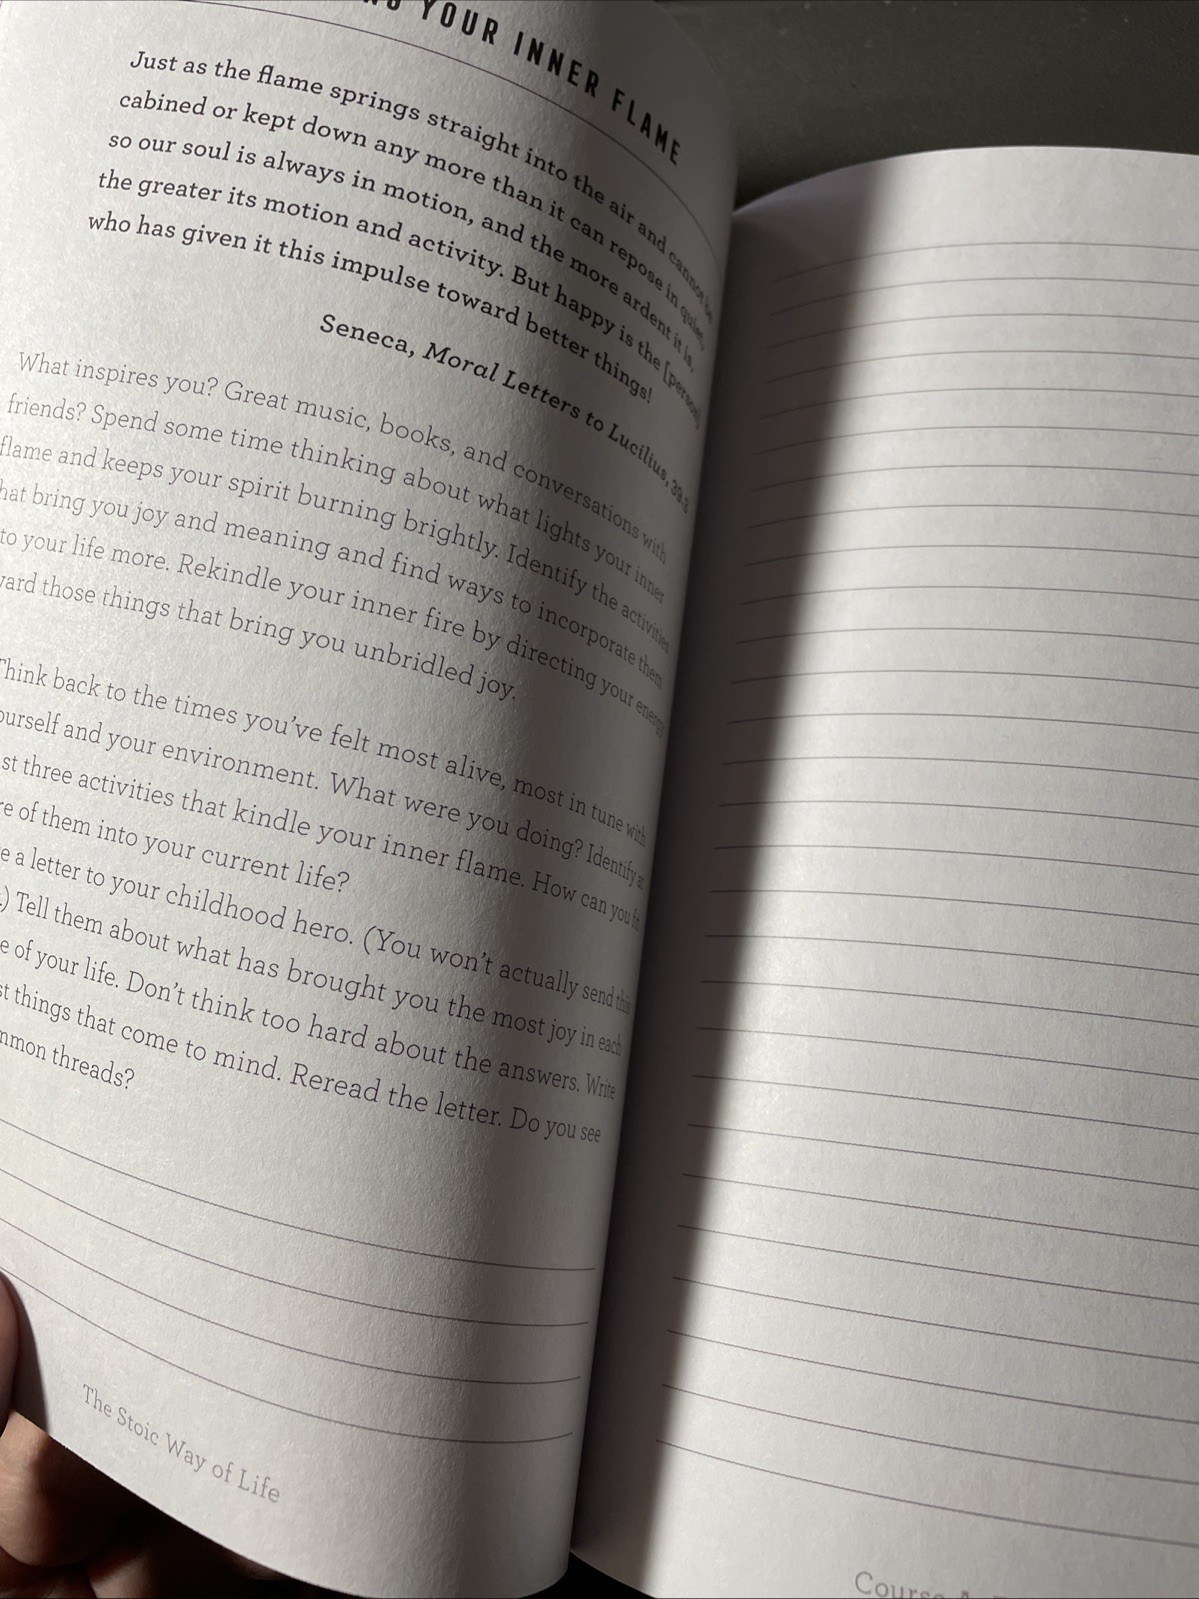 YOUR INNER FLAME
Just as the flame springs straight into the air and cannot be
cabined or kept down any more than it can repose in quiet,
so our soul is always in motion, and the more ardent it is,
the greater its motion and activity. But happy is the [person]
who has given it this impulse toward better things!
Seneca, Moral Letters to Lucilius, 39.3
What inspires you? Great music, books, and conversations with
friends? Spend some time thinking about what lights your inner
flame and keeps your spirit burning brightly. Identify the activities
hat bring you joy and meaning and find ways to incorporate them
to your life more. Rekindle your inner fire by directing your energy
ard those things that bring you unbridled joy.
Think back to the times you've felt most alive, most in tune with
ourself and your environment. What were you doing? Identify at
st three activities that kindle your inner flame. How can you fit
re of them into your current life?
e a letter to your childhood hero. (You won't actually send this
.) Tell them about what has brought you the most joy in each
e of your life. Don't think too hard about the answers. Write
st things that come to mind. Reread the letter. Do you see
mmon threads?
The Stoic Way of Life
Course